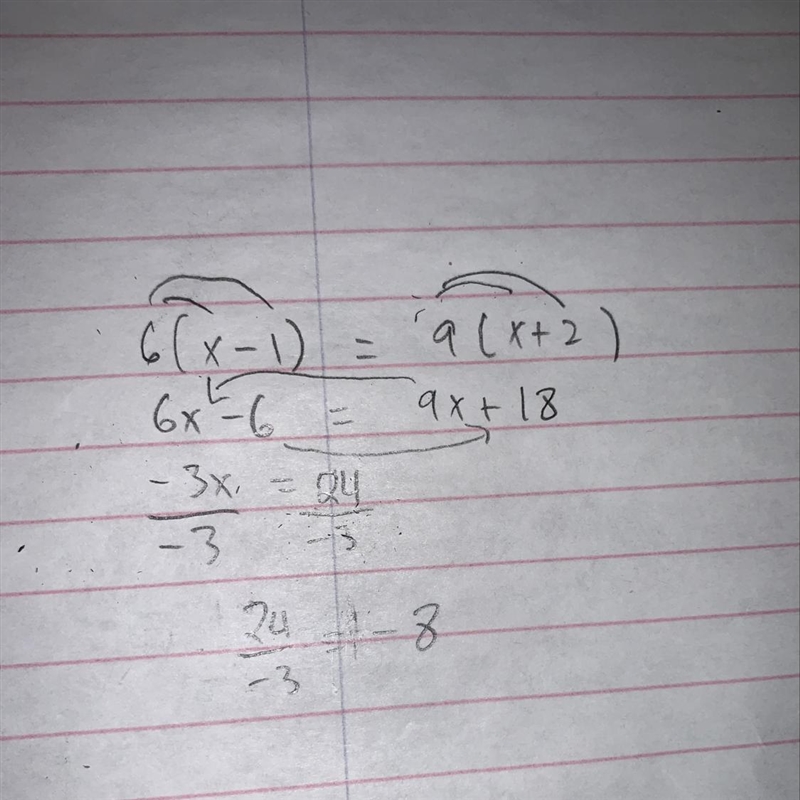 6(x-1) = 9(x+2)
6x-6 = 9x+18
-3x = 24
-3 -3
24
-3
= -8